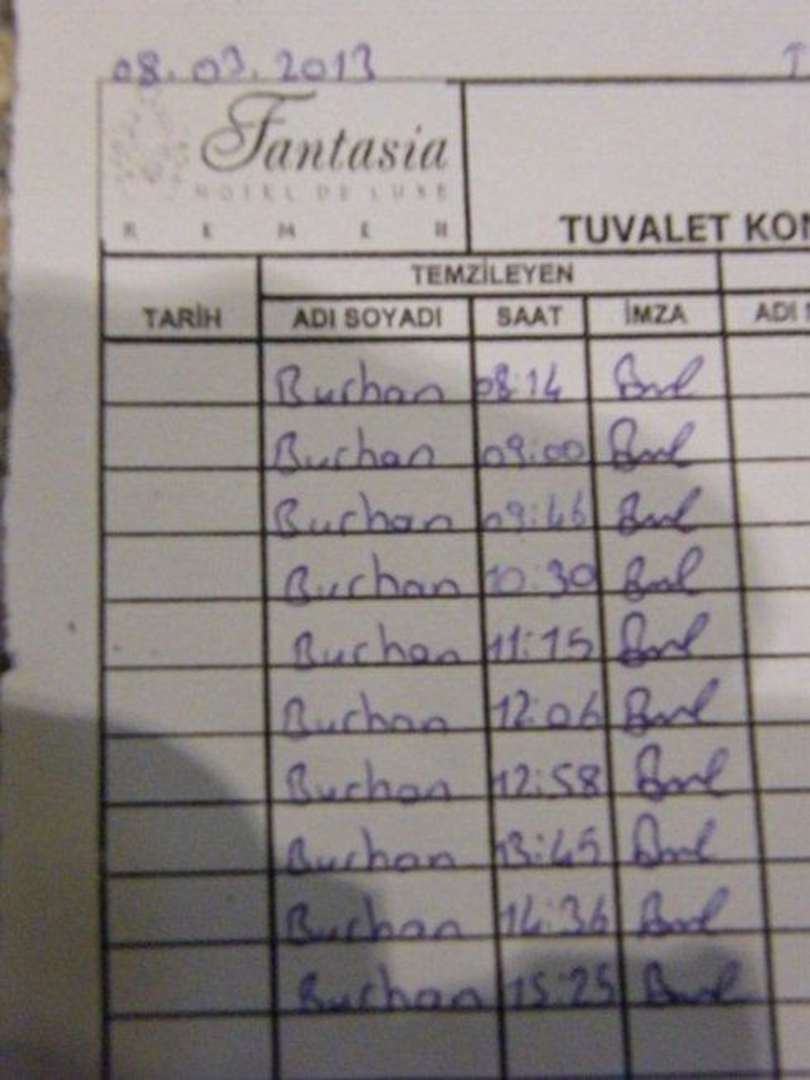 08.03.2013
Fantasia
HOTEL DE LUXE
K E M E R
TUVALET KON
TEMZİLEYEN
TARİH ADI SOYADI SAAT İMZA ADI
Burhan 08:14
Burhan 09:00
Burhan 09:46
Burhan 10:30
Burhan 11:15
Burhan 12:06
Burhan 12:58
Burhan 13:45
Burhan 14:36
Burhan 15:25